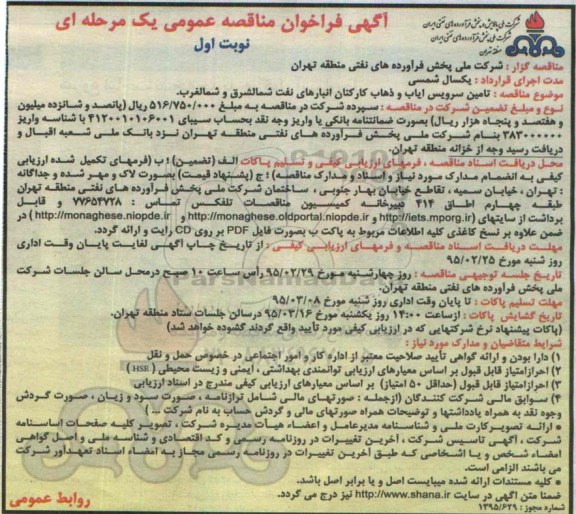 شرکت ملی پالایش و پخش فرآورده های نفتی ایران
شرکت ملی پخش فرآورده های نفتی ایران
منطقه تهران
آگهی فراخوان مناقصه عمومی یک مرحله ای
نوبت اول
مناقصه گزار : شرکت ملی پخش فرآورده های نفتی منطقه تهران
مدت اجرای قرارداد : یکسال شمسی
موضوع مناقصه : تامین سرویس ایاب و ذهاب کارکنان انبارهای نفت شمالشرق و شمالغرب.
نوع و مبلغ تضمین شرکت در مناقصه : سپرده شرکت در مناقصه به مبلغ ۵۱۶/۷۵۰/۰۰۰ ریال (پانصد و شانزده میلیون
و هفتصد و پنجاه هزار ریال) بصورت ضمانتنامه بانکی یا واریز وجه نقد بحساب سیبای ۴۱۲۰۰۱۰۱۰۶۰۰۱ با شناسه واریز
۳۸۳۰۰۰۰۰۰ بنام شرکت ملی پخش فرآورده های نفتی منطقه تهران نزد بانک ملی شعبه اقبال و
دریافت رسید وجه از خزانه منطقه تهران.
محل دریافت اسناد مناقصه ، فرمهای ارزیابی کیفی و تسلیم پاکات الف (تضمین) ؛ ب (فرمهای تکمیل شده ارزیابی
کیفی به انضمام مدارک مورد نیاز و اسناد و مدارک مناقصه) ؛ ج (پیشنهاد قیمت) بصورت لاک و مهر شده و جداگانه
: تهران ، خیابان سمیه ، تقاطع خیابان بهار جنوبی ، ساختمان شرکت ملی پخش فرآورده های نفتی منطقه تهران
طبقه چهارم اطاق ۴۱۴ دبیرخانه کمیسیون مناقصات تلفکس تماس : ۷۷۶۵۴۷۲۸ و قابل
برداشت از سایتهای (http://iets.mporg.ir و http://monaghese.oldportal.niopdc.ir و http://monaghese.niopdc.ir ) در
ضمن علاوه بر نسخ کاغذی کلیه اطلاعات مربوط به پاکت ب بصورت فایل PDF بر روی CD رایت و ارائه گردد.
مهلت دریافت اسناد مناقصه و فرمهای ارزیابی کیفی : از تاریخ چاپ آگهی لغایت پایان وقت اداری
روز شنبه مورخ ۹۵/۰۲/۲۵
تاریخ جلسه توجیهی مناقصه : روز چهارشنبه مورخ ۹۵/۰۲/۲۹ رأس ساعت ۱۰ صبح درمحل سالن جلسات شرکت
ملی پخش فرآورده های نفتی منطقه تهران.
مهلت تسلیم پاکات : تا پایان وقت اداری روز شنبه مورخ ۹۵/۰۳/۰۸
تاریخ گشایش پاکات : ازساعت ۱۴:۰۰ روز یکشنبه مورخ ۹۵/۰۳/۱۶ درسالن جلسات ستاد منطقه تهران.
(پاکات پیشنهاد نرخ شرکتهایی که در ارزیابی کیفی مورد تأیید واقع گردند گشوده خواهد شد)
شرایط متقاضیان و مدارک مورد نیاز :
۱) دارا بودن و ارائه گواهی تأیید صلاحیت معتبر از اداره کار و امور اجتماعی در خصوص حمل و نقل
۲) احرازامتیاز قابل قبول بر اساس معیارهای ارزیابی توانمندی بهداشتی ، ایمنی و زیست محیطی ( HSE )
۳) احرازامتیاز قابل قبول (حداقل ۵۰ امتیاز) بر اساس معیارهای ارزیابی کیفی مندرج در اسناد ارزیابی
۴) سوابق مالی شرکت کنندگان (ازجمله : صورتهای مالی شامل ترازنامه ، صورت سود و زیان ، صورت گردش
وجوه نقد به همراه یادداشتها و توضیحات همراه صورتهای مالی و گردش حساب به نام شرکت ... )
* ارائه تصویرکارت ملی و شناسنامه مدیرعامل و اعضاء هیأت مدیره شرکت ، تصویر کلیه صفحات اساسنامه
شرکت ، آگهی تاسیس شرکت ، آخرین تغییرات در روزنامه رسمی و کد اقتصادی و شناسه ملی و اصل گواهی
امضاء شخص و یا اشخاصی که طبق آخرین تغییرات در روزنامه رسمی مجاز به امضاء اسناد تعهدآور شرکت
می باشند الزامی است.
* کلیه مستندات ارائه شده میبایست اصل و یا برابر اصل باشد.
ضمنا متن اگهی در سایت http://www.shana.ir نیز درج می گردد.
شماره مجوز : ۱۳۹۵/۶۲۹
روابط عمومی